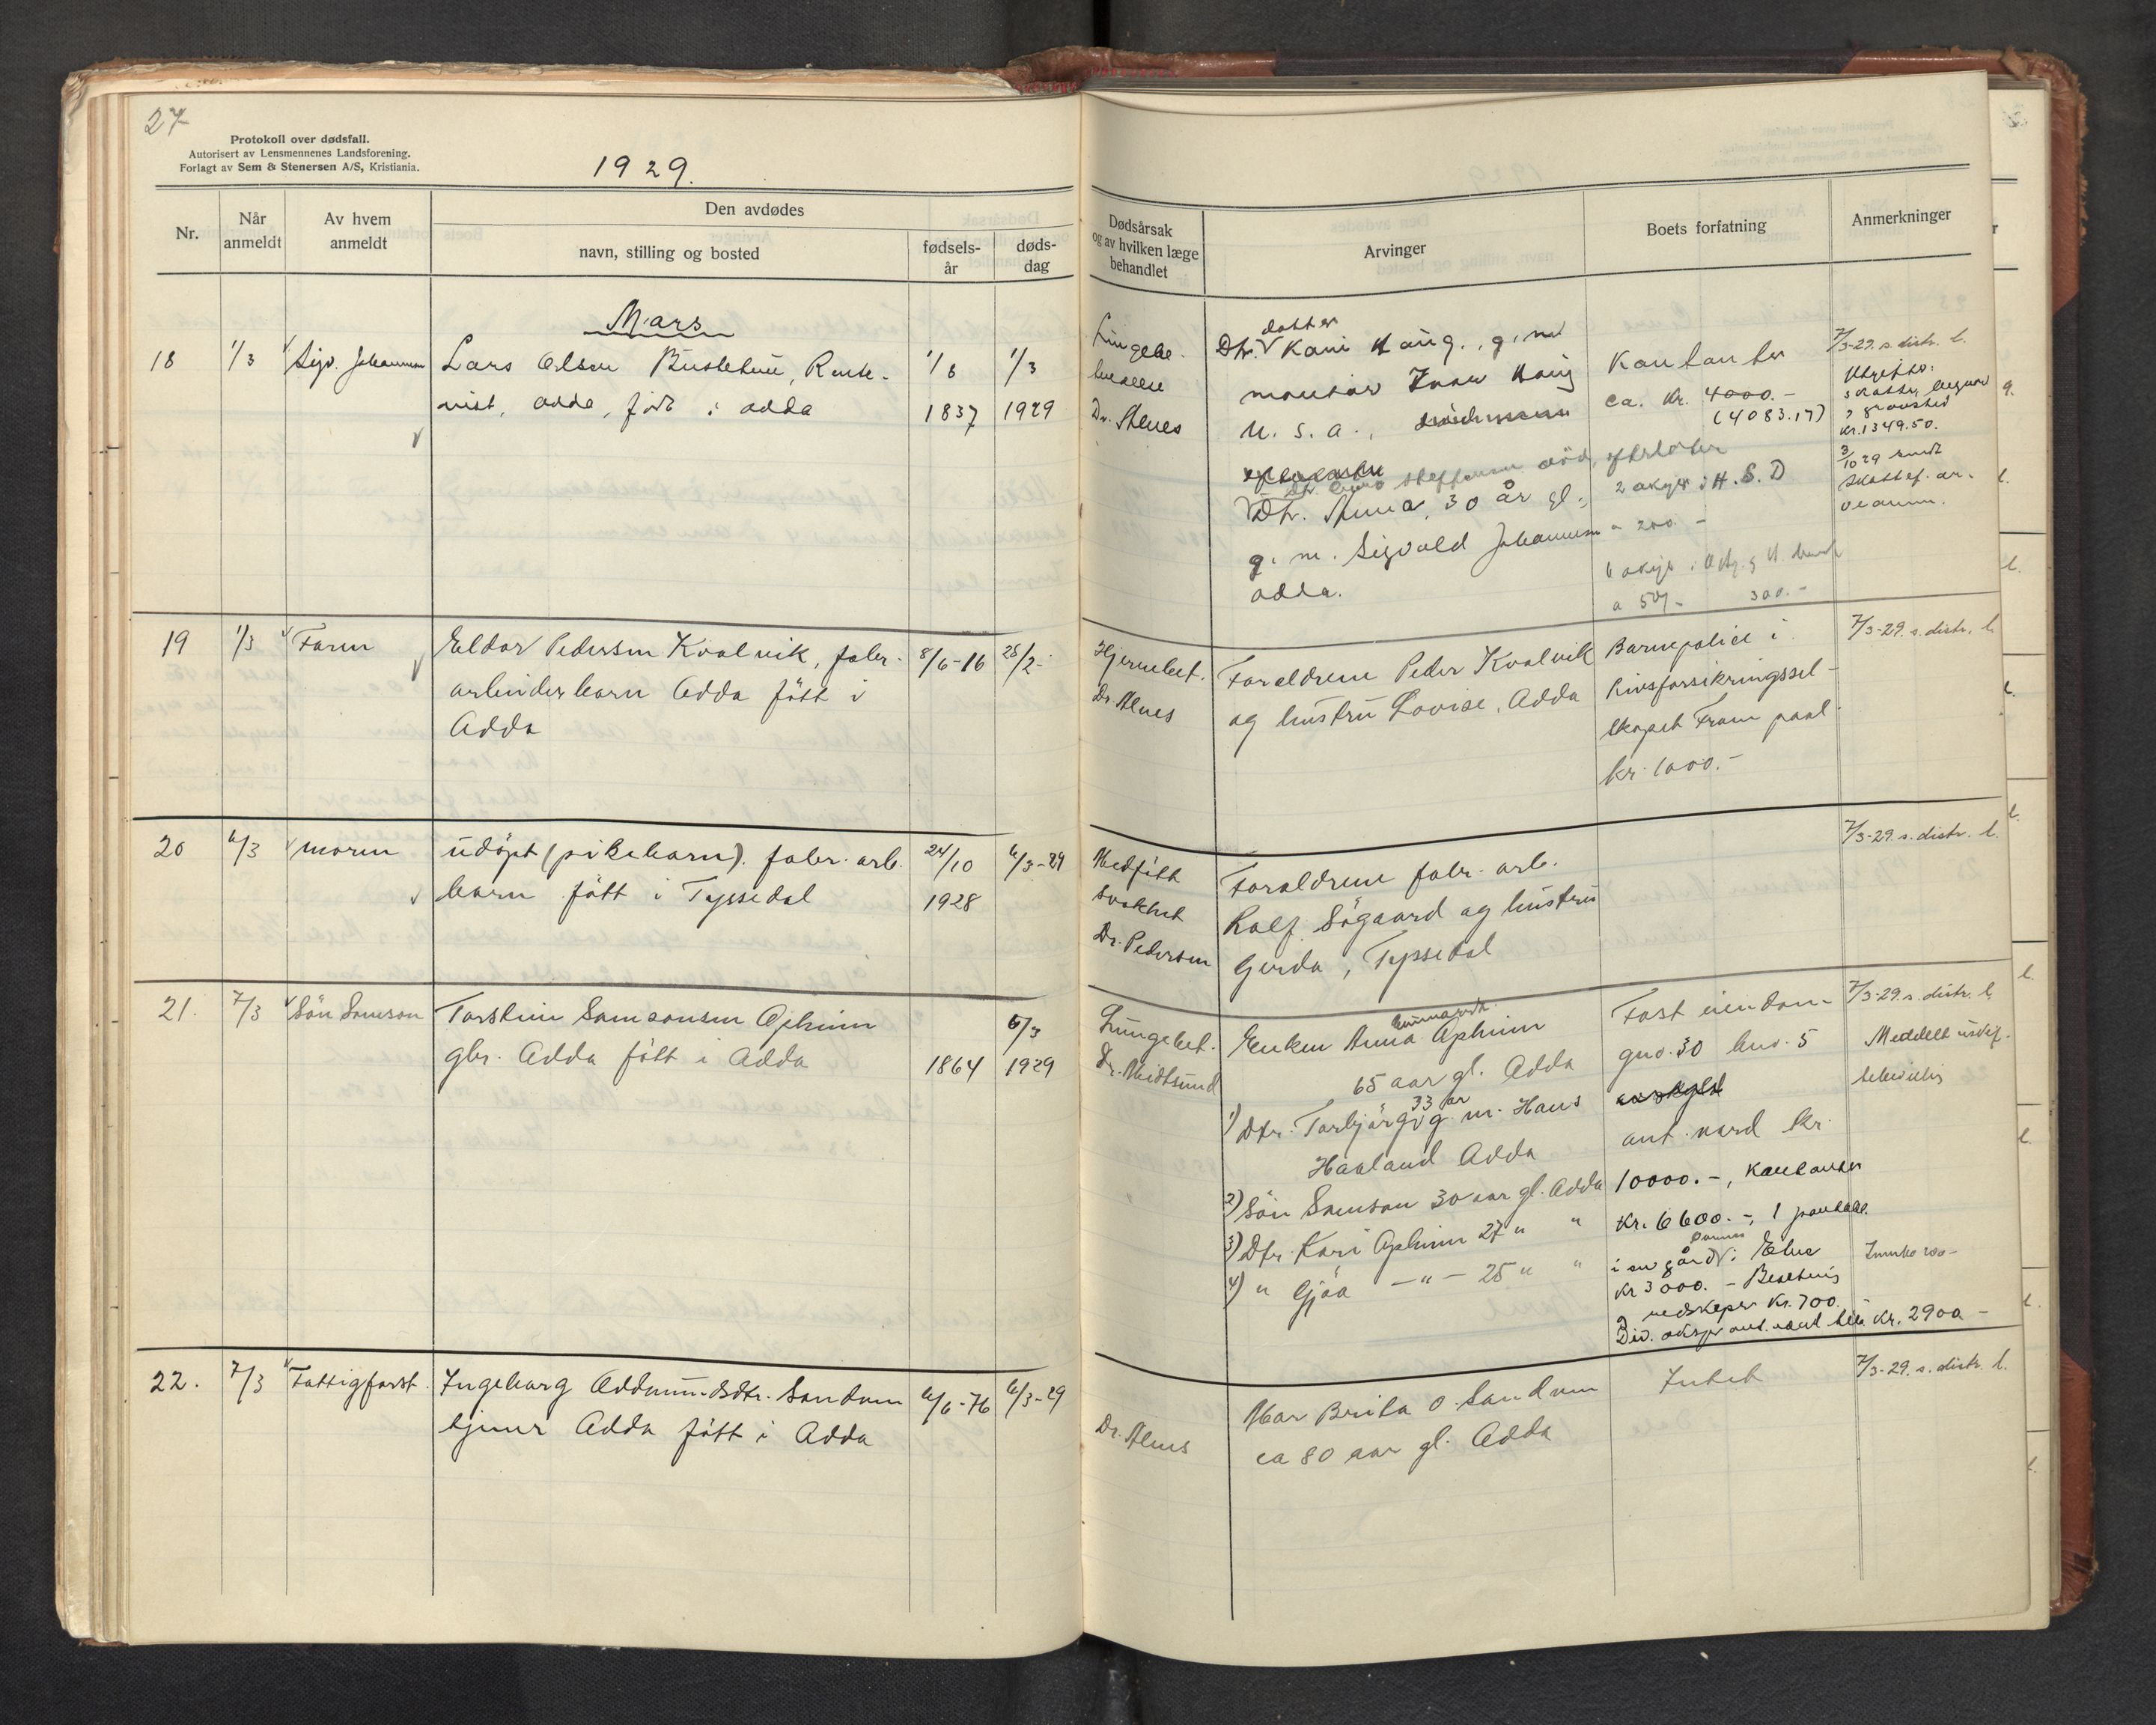 27
Protokoll over dødsfall.
Autorisert av Lensmennenes Landsforening.
Forlagt av Sem & Stenersen A/S, Kristiania.
1929.
Nr.
Når anmeldt
Av hvem anmeldt
Den avdødes
navn, stilling og bosted
fødsels-år
døds-dag
Dødsårsak og av hvilken læge behandlet
Arvinger
Boets forfatning
Anmerkninger
Mars
18 1/3 Sigv. Johannessen
Lars Olsen Bustetun, Rente-
nist, Odda, født i Odda
1/8 1837
1/3 1929
Lungebe-
Dr. Alnes
Dtr. datter Kari Haug, g. m.
Ivar Haug
U. S. A.,
Dtr. Anna, 30 år gl.,
g. m. Sigvald Johannessen
Odda.
Kontanter
ca. kr. 4000.-
(4083.17)
2 aksjer i H. S. D
a 200.-
a 50/- 300.-
7/3-29. s. distr. l.
kr. 1349.50.
3/10 29 sendt
19 1/3 Faren
Eldar Pedersen Kvalvik, fabr.
arbeiderbarn Odda født i
Odda
8/6-16
28/2-
Hjernebet.
Dr. Alnes
Foreldrene Peder Kvalvik
og hustru Lovise, Odda
Barnepolice i
livsforsikringssel-
skapet Fram paal.
kr. 1000.-
7/3-29. s. distr. l.
20 6/3 moren
udøpt (pikebarn). fabr. arb.
barn født i Tyssedal
24/10 1928
6/3-29
Medfødt
svakhet
Dr. Pedersen
Foreldrene fabr. arb.
Rolf Søgaard og hustru
Gerda, Tyssedal
7/3-29. s. distr. l.
21. 7/3 Søn Samson
Torstein Samsonsen Opheim
gbr. Odda født i Odda
1864
6/3 1929
Lungebet.
Dr. Midtsund
Enken Anna Opheim
65 aar gl. Odda
1) Dtr. Torbjørg 33 år g. m. Hans
Haaland Odda
2) Søn Samson 30 aar gl. Odda
3) Dtr. Kari Opheim 27 " "
4) " Gjøa —"— 25 " "
Fast eiendom
gno. 30 bno. 5
ant. verd kr.
10000.-, Kontanter
Kr. 6600.-, 1 pantobl.
kr 3000. - Besetning
redskaper Kr. 700.
Div. aksjer ant. verd kr. 2900 -
7/3-29. s. distr. l.
Meddelt uskif-
tebevilling
22. 7/3 Fattigforst.
Ingeborg Oddmundsdtr. Sandven
tjener Odda født i Odda
6/6-76
6/3-29
Dr. Alnes
Mor Brita O. Sandven
ca 80 aar gl. Odda
Intet
7/3-29. s. distr. l.